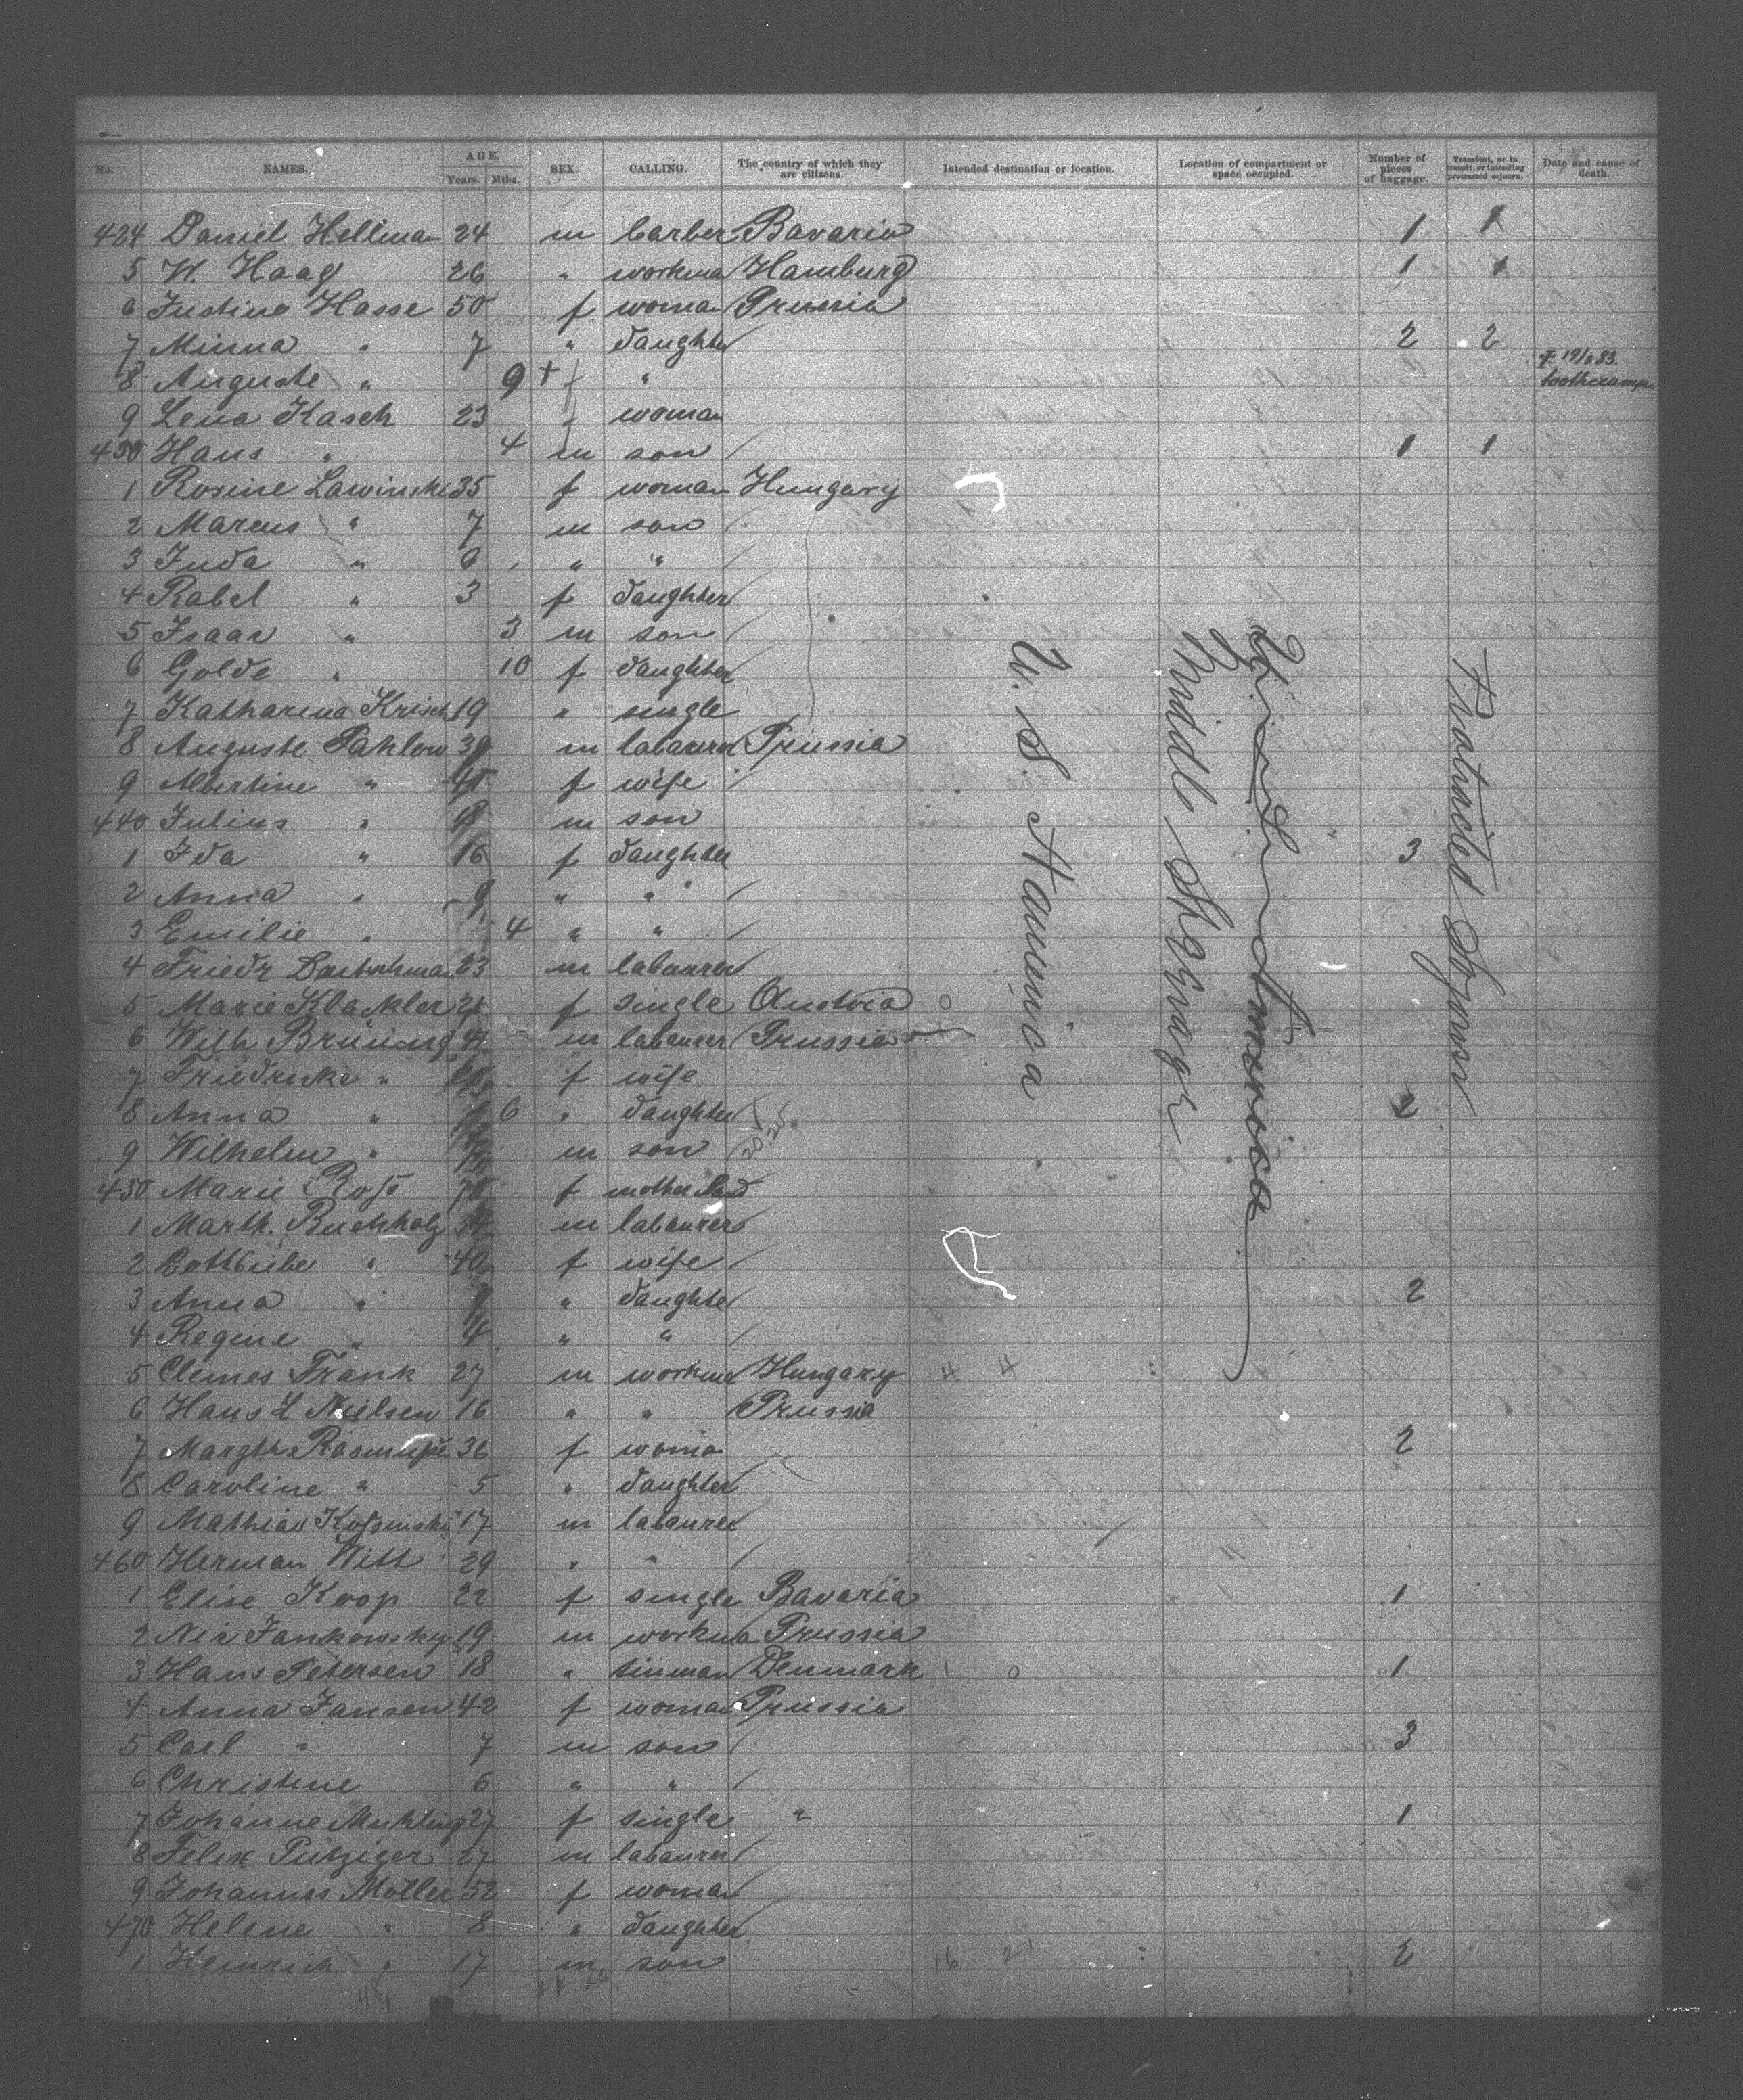 No. NAMES. AGE. Years. Mths. SEX. CALLING. The country of which they are citizens. Intended destination or location. Location of compartment or space occupied. Number of pieces of baggage. Transient, or in transit, or intending protracted sojourn. Date and cause of death.
424 Daniel Hellman 24 m barber Bavaria 1 1
5 W. Haag 26 " workma Hamburg 1 1
6 Justine Hasse 50 f woman Prussia
7 Minna " 7 " daughter 2 2
8 Auguste " 9 + f " † 19/3 83. toothcramp
9 Lena Kasch 23 f woman
430 Hans " 4 m son 1 1
1 Rosine Lawinski 35 f woman Hungary
2 Marcus " 7 m son
3 Juda " 6 " "
4 Rabel " 3 f daughter
5 Isaac " 3 m son
6 Golde " 10 f daughter
7 Katharina Krisch 19 " single
8 Auguste Pahlow 39 m labaurer Prussia
9 Albertine " f wife
440 Julius " m son
1 Ida " 16 f daughter 3
2 Anna " 9 " "
3 Emilie " 4 " "
4 Friedr 23 m labaurer
5 Marie Klackler 21 f single Austria 0
6 Wilh Brüning m labaurer Prussia
7 Friedricke " f wife
8 Anna " 6 " daughter 2
9 Wilhelm " m son
450 Marie Roß f
1 Marth. Buchholz m labaurer
2 Gottliebe " 40 f wife
3 Anna " " daughter 2
4 Regine " 4 " "
5 Clemes Frank 27 m workma Hungary 4 4
6 Hans L Nielsen 16 " " Prussia
7 36 f woman 2
8 Caroline " 5 " daughter
9 Mathias Koßinski 17 m labaurer
460 Herman Witt 29 " "
1 Elise Koop 22 f single Bavaria 1
2 Jankowsky 19 m workma Prussia
3 Hans Petersen 18 " Denmark 1 0 1
4 Anna Jansen 42 f woman Prussia
5 Carl " 7 m son 3
6 Christine 6 " "
7 Johanne 27 f single " 1
8 Felix Pütziger 27 m labaurer
9 Johannes Möller 52 f woman
470 Helene " 8 " daughter
1 Heinrich " 17 m son 16 21 2
U. S. America
Middle Steerage
Protracted Sojourn